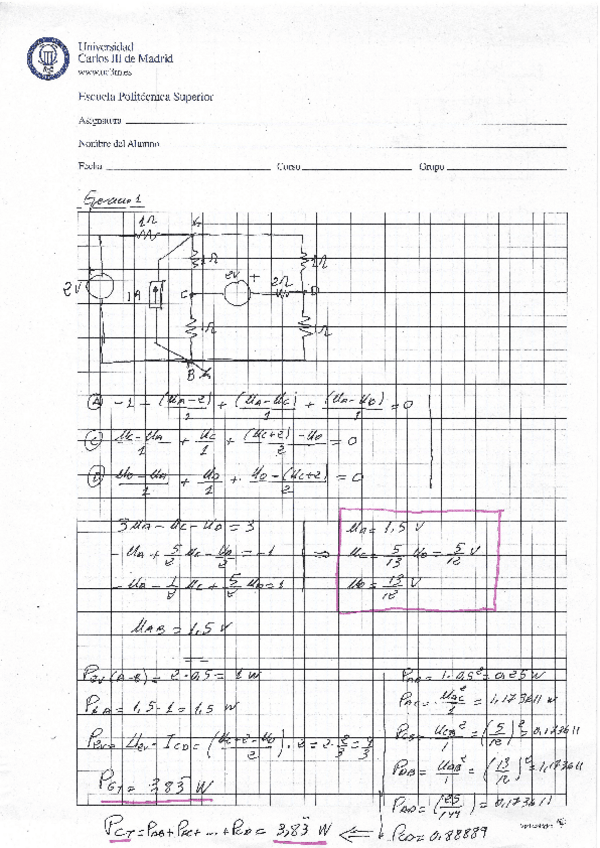 Universidad
Carlos III de Madrid
www.uc3m.es
Escuela Politécnica Superior
Asignatura
Nombre del Alumno
Fecha Curso Grupo
Ejercicio 1
1Ω A
1Ω 2V + 2Ω 1Ω
2V 1A C D
1Ω 1Ω
B
(A) -1 + (UA-2)/1 + (UA-UC)/1 + (UA-UD)/1 = 0
(C) UC-UA/1 + UC/1 + (UC+2)-UD/2 = 0
(D) UD-UA/1 + UD/1 + UD-(UC+2)/2 = 0
3UA-UC-UD=3 UA=1,5 V
-UA+5/2 UC-UD/2=-1 ⇒ UC=5/12 V
-UA-1/2 UC+5/2 UD=1 UD=13/12 V
UAB=1,5 V
= 2·0,5=1 W
P1A=1,5·1=1,5 W
P2V= U2V·ICD=(UC+2-UD/2)·2=2·2/3=4/3
PGT=3,83 W
PAD=1·0,5²=0,25 W
PAC=UAC²/1=1,173611 W
PCB=UCB²/1=(5/12)²=0,173611
PDB=UDB²/1=(13/12)²=1,173611
PAD=(25/144)=0,173611
PCD=0,88889
PCT=PAB+PAC+...+PCD=3,83 W ⇐